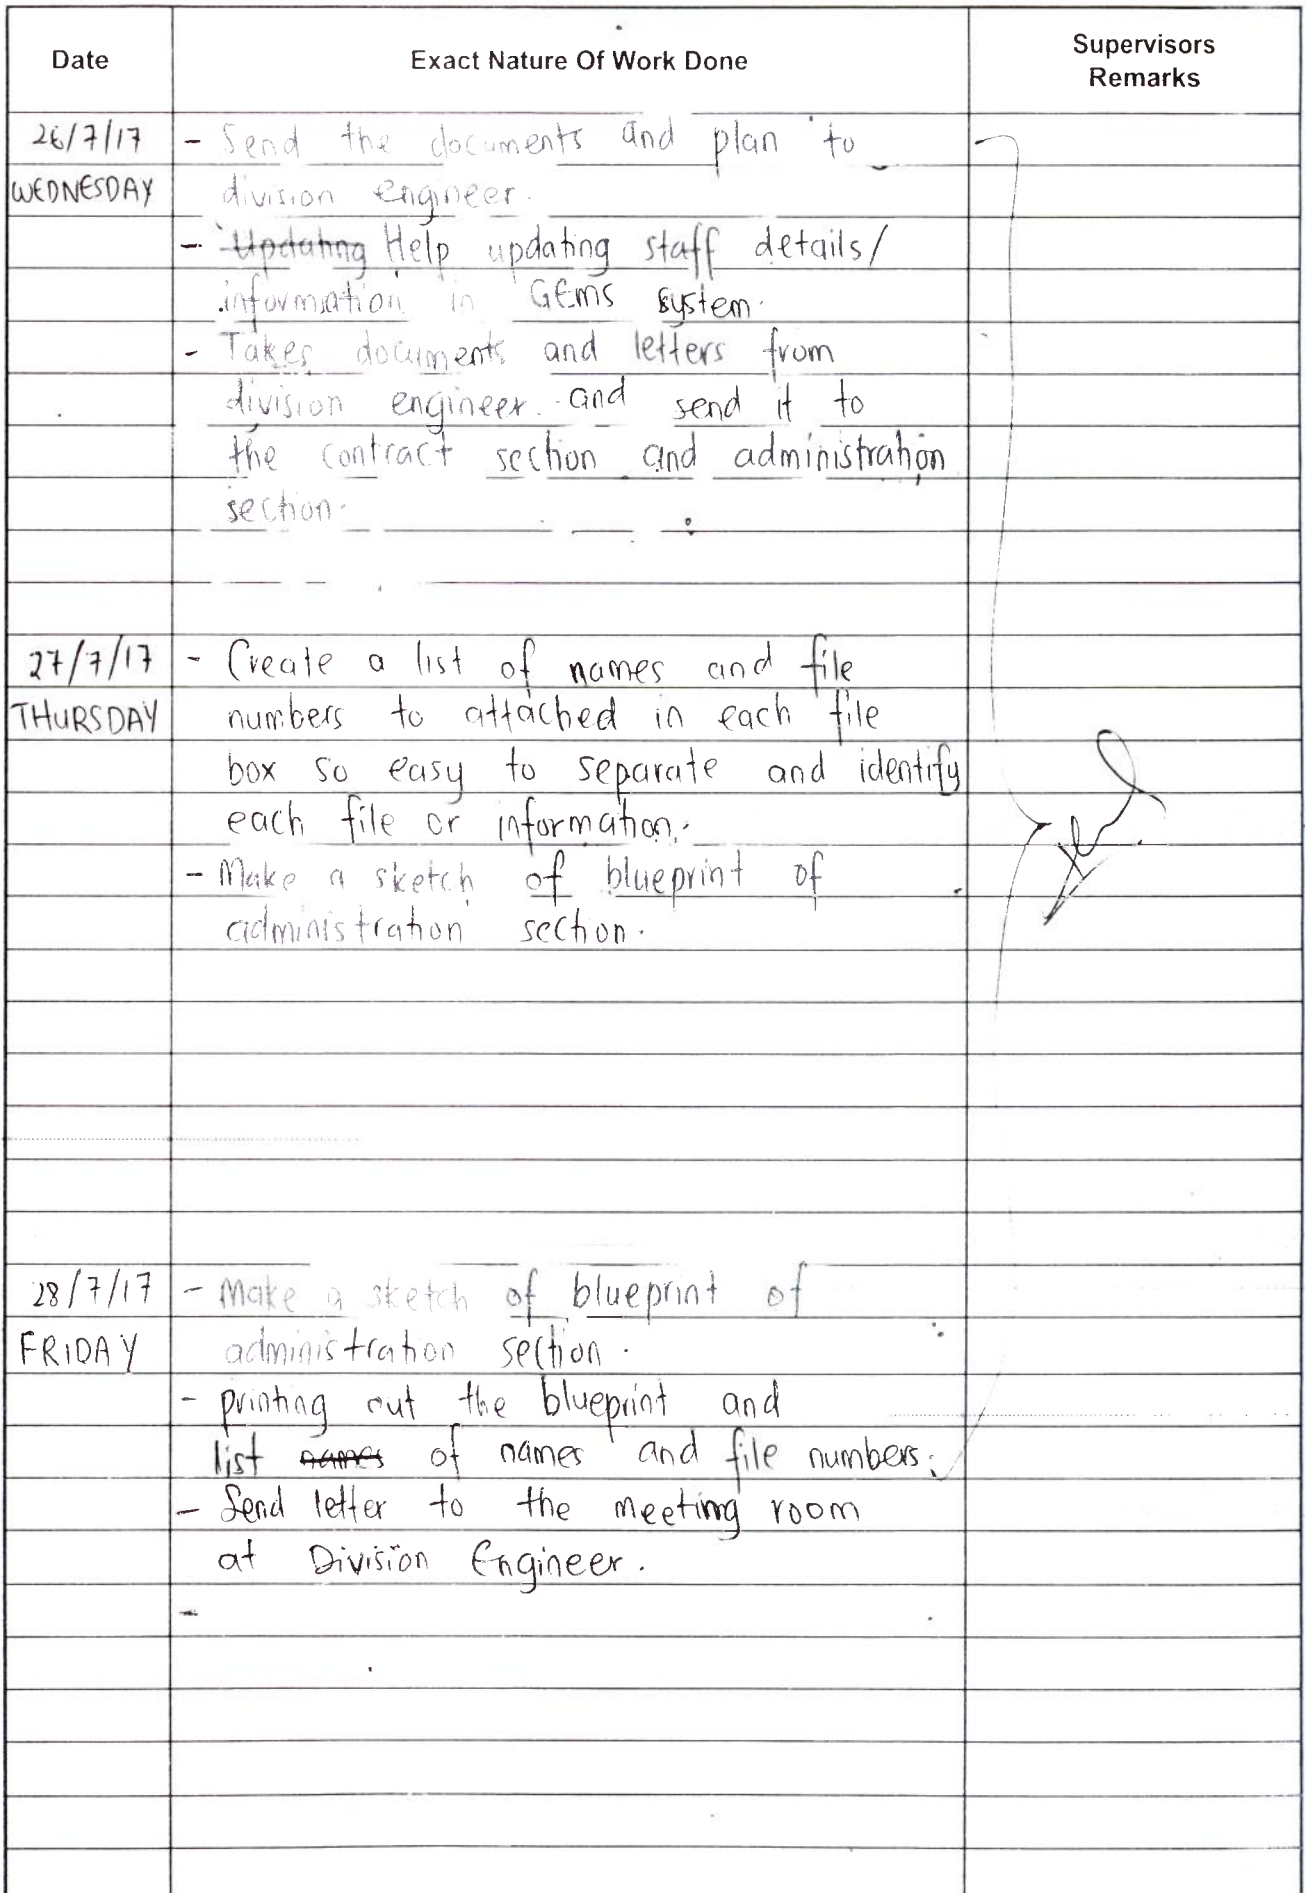 Date Exact Nature Of Work Done Supervisors
Remarks
26/7/17 - Send the documents and plan to
WEDNESDAY division engineer.
- Updating Help updating staff details/
information in GEms system.
- Takes documents and letters from
division engineer. and send it to
the contract section and administration
section.
27/7/17 - Create a list of names and file
THURSDAY numbers to attached in each file
box so easy to separate and identify
each file or information.
- Make a sketch of blueprint of
administration section.
28/7/17 - Make a sketch of blueprint of
FRIDAY administration section.
- printing out the blueprint and
list names of names and file numbers.
- Send letter to the meeting room
at Division Engineer.
-